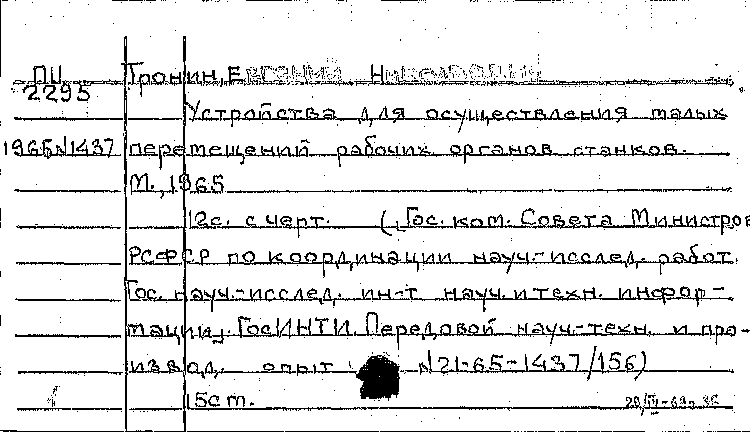 ПЦ Тронин, Евгений Николаевич
2295
Устройства для осуществления малых
1965№1437 перемещений рабочих органов станков.
М., 1965
12с. с черт. ([Гос. ком. Совета Министров
РСФСР по координации науч.-исслед. работ.
Гос. науч.-исслед. ин-т науч. и техн. инфор-
мации]. ГосИНТИ. Передовой науч.-техн. и про-
извод. опыт №21-65-1437/156)
15см.